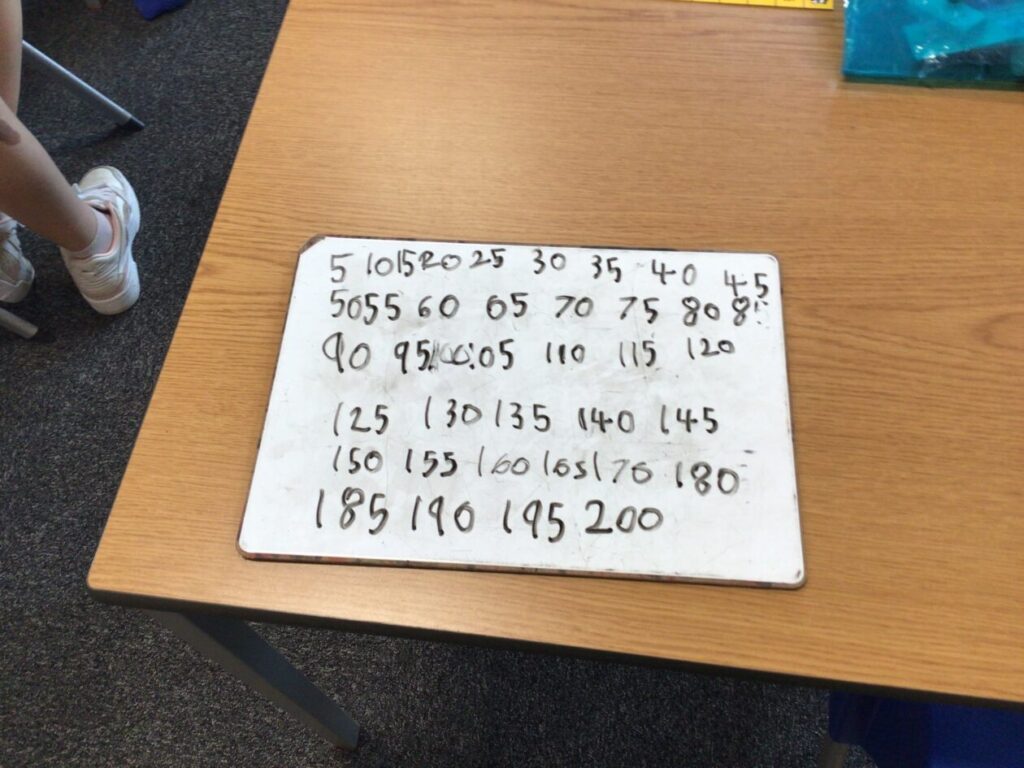 5 10 15 20 25 30 35 40 45
50 55 60 65 70 75 80 85
90 95 100 105 110 115 120
125 130 135 140 145
150 155 160 165 170 180
185 190 195 200